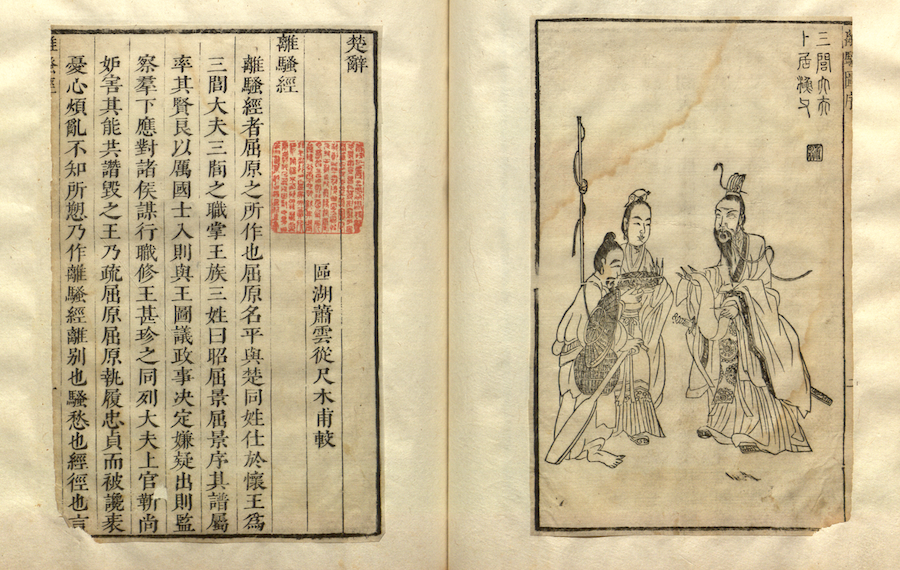 離騷圖序
三閭大夫
卜居漁父
楚辭
區湖蕭雲從尺木甫較
離騷經
離騷經者屈原之所作也屈原名平與楚同姓仕於懷王爲
三閭大夫三閭之職掌王族三姓曰昭屈景屈景序其譜屬
率其賢良以厲國士入則與王圖議政事决定嫌疑出則監
察羣下應對諸侯謀行職修王甚珍之同列大夫上官靳尚
妬害其能共譖毀之王乃疏屈原屈原執履忠貞而被讒衺
憂心煩亂不知所愬乃作離騷經離别也騷愁也經徑也言
離騷經